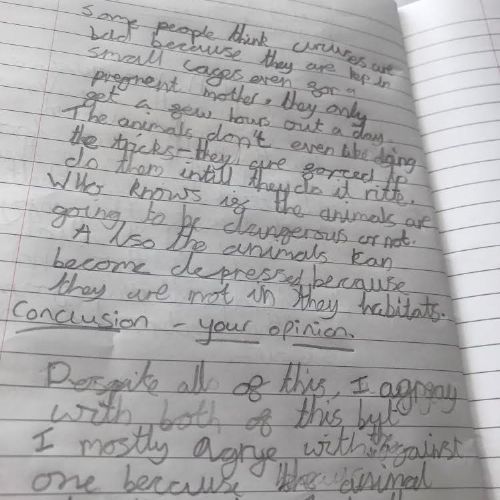 Some people think curuses are
bad because they are kep in
small cages even gor a
pregnent mother, they only
get a gew hours out a day.
The animals don't even like doing
the tricks - they are gorced to
do them intill they do it ritte.
Who knows ig the animals are
going to be dangerous or not.
Also the animals kan
become depressed because
they are not in they habitats.
Conclusion - your opinion.
Despite all og this, I agrgay
with both og this byt
I mostly agrye with against
one because animal